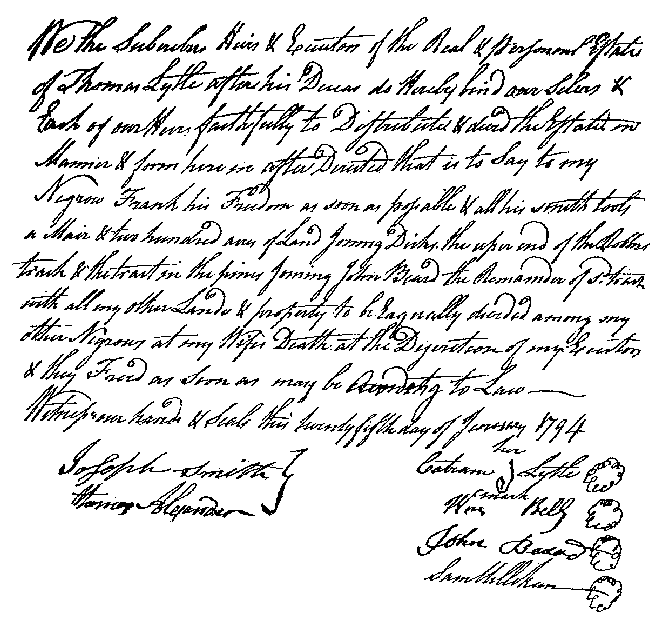 We the Subscribers Heirs & Executors of the Real & Personal Estate
of Thomas Lytle after his Deceas do Hereby bind our Selves &
Each of our Heirs faithfully to Distribute & divid the Estate in
Manner & form here in after Directed that is to Say to my
Negrow Frank his Freedom as soon as possable & all his smith tools
a Mair & two hundred acres of Land Joining Dicks the uper end of the
track & the tract in the pines Joining John Beard the Remainder of sd. track
with all my other Lands & property to be Eaqually divided among my
other Negrows at my Wifes Death at the Discretion of my Executors
& they Freed as soon as may be according to Law
Witness our hands & Seals this twenty fifth day of January 1794
her
Joseph Smith Catran Lytle
mark
Thomas Alexander Wm Bell
John
Sam Millikan